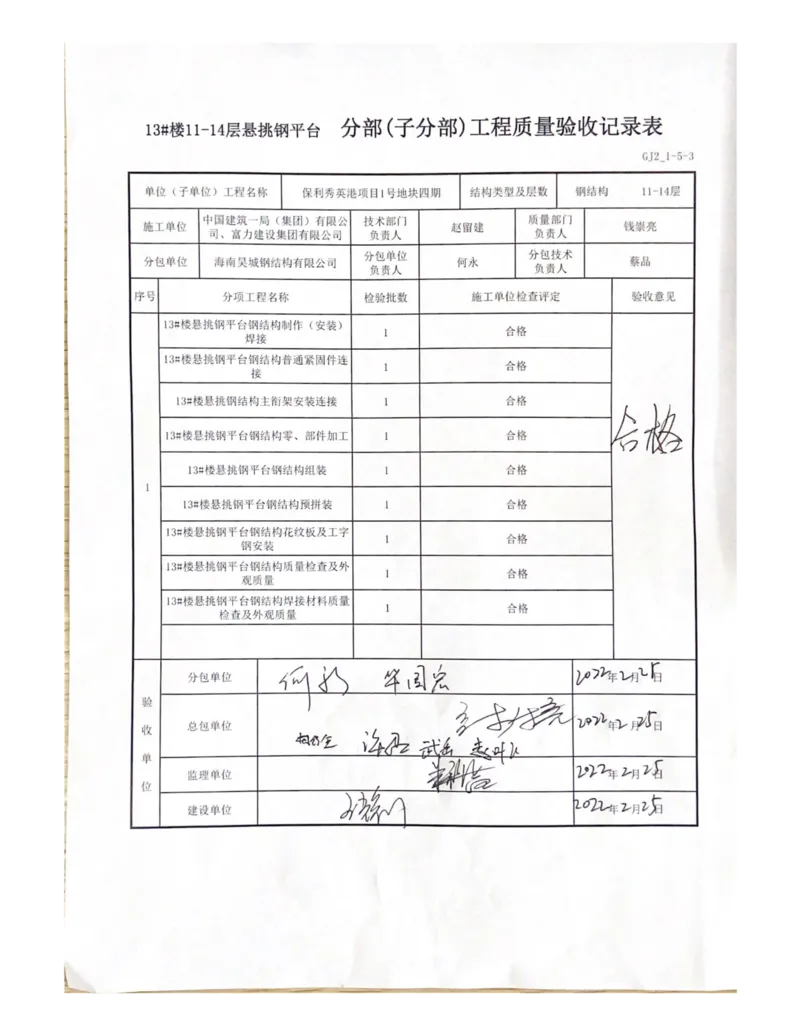 13#楼11-14层悬挑钢平台 分部(子分部)工程质量验收记录表
GJ2_1-5-3
单位（子单位）工程名称 保利秀英港项目1号地块四期 结构类型及层数 钢结构 11-14层
施工单位 中国建筑一局（集团）有限公司、富力建设集团有限公司 技术部门负责人 赵留建 质量部门负责人 钱崇亮
分包单位 海南昊城钢结构有限公司 分包单位负责人 何永 分包技术负责人 蔡品
序号 分项工程名称 检验批数 施工单位检查评定 验收意见
13#楼悬挑钢平台钢结构制作（安装）焊接 1 合格
13#楼悬挑钢平台钢结构普通紧固件连接 1 合格
13#楼悬挑钢结构主衔架安装连接 1 合格
13#楼悬挑钢平台钢结构零、部件加工 1 合格
合格
13#楼悬挑钢平台钢结构组装 1 合格
1
13#楼悬挑钢平台钢结构预拼装 1 合格
13#楼悬挑钢平台钢结构花纹板及工字钢安装 1 合格
13#楼悬挑钢平台钢结构质量检查及外观质量 1 合格
13#楼悬挑钢平台钢结构焊接材料质量检查及外观质量 1 合格
验收单位
分包单位 2022年2月25日
总包单位 武岳 2022年2月25日
监理单位 2022年2月25日
建设单位 2022年2月25日